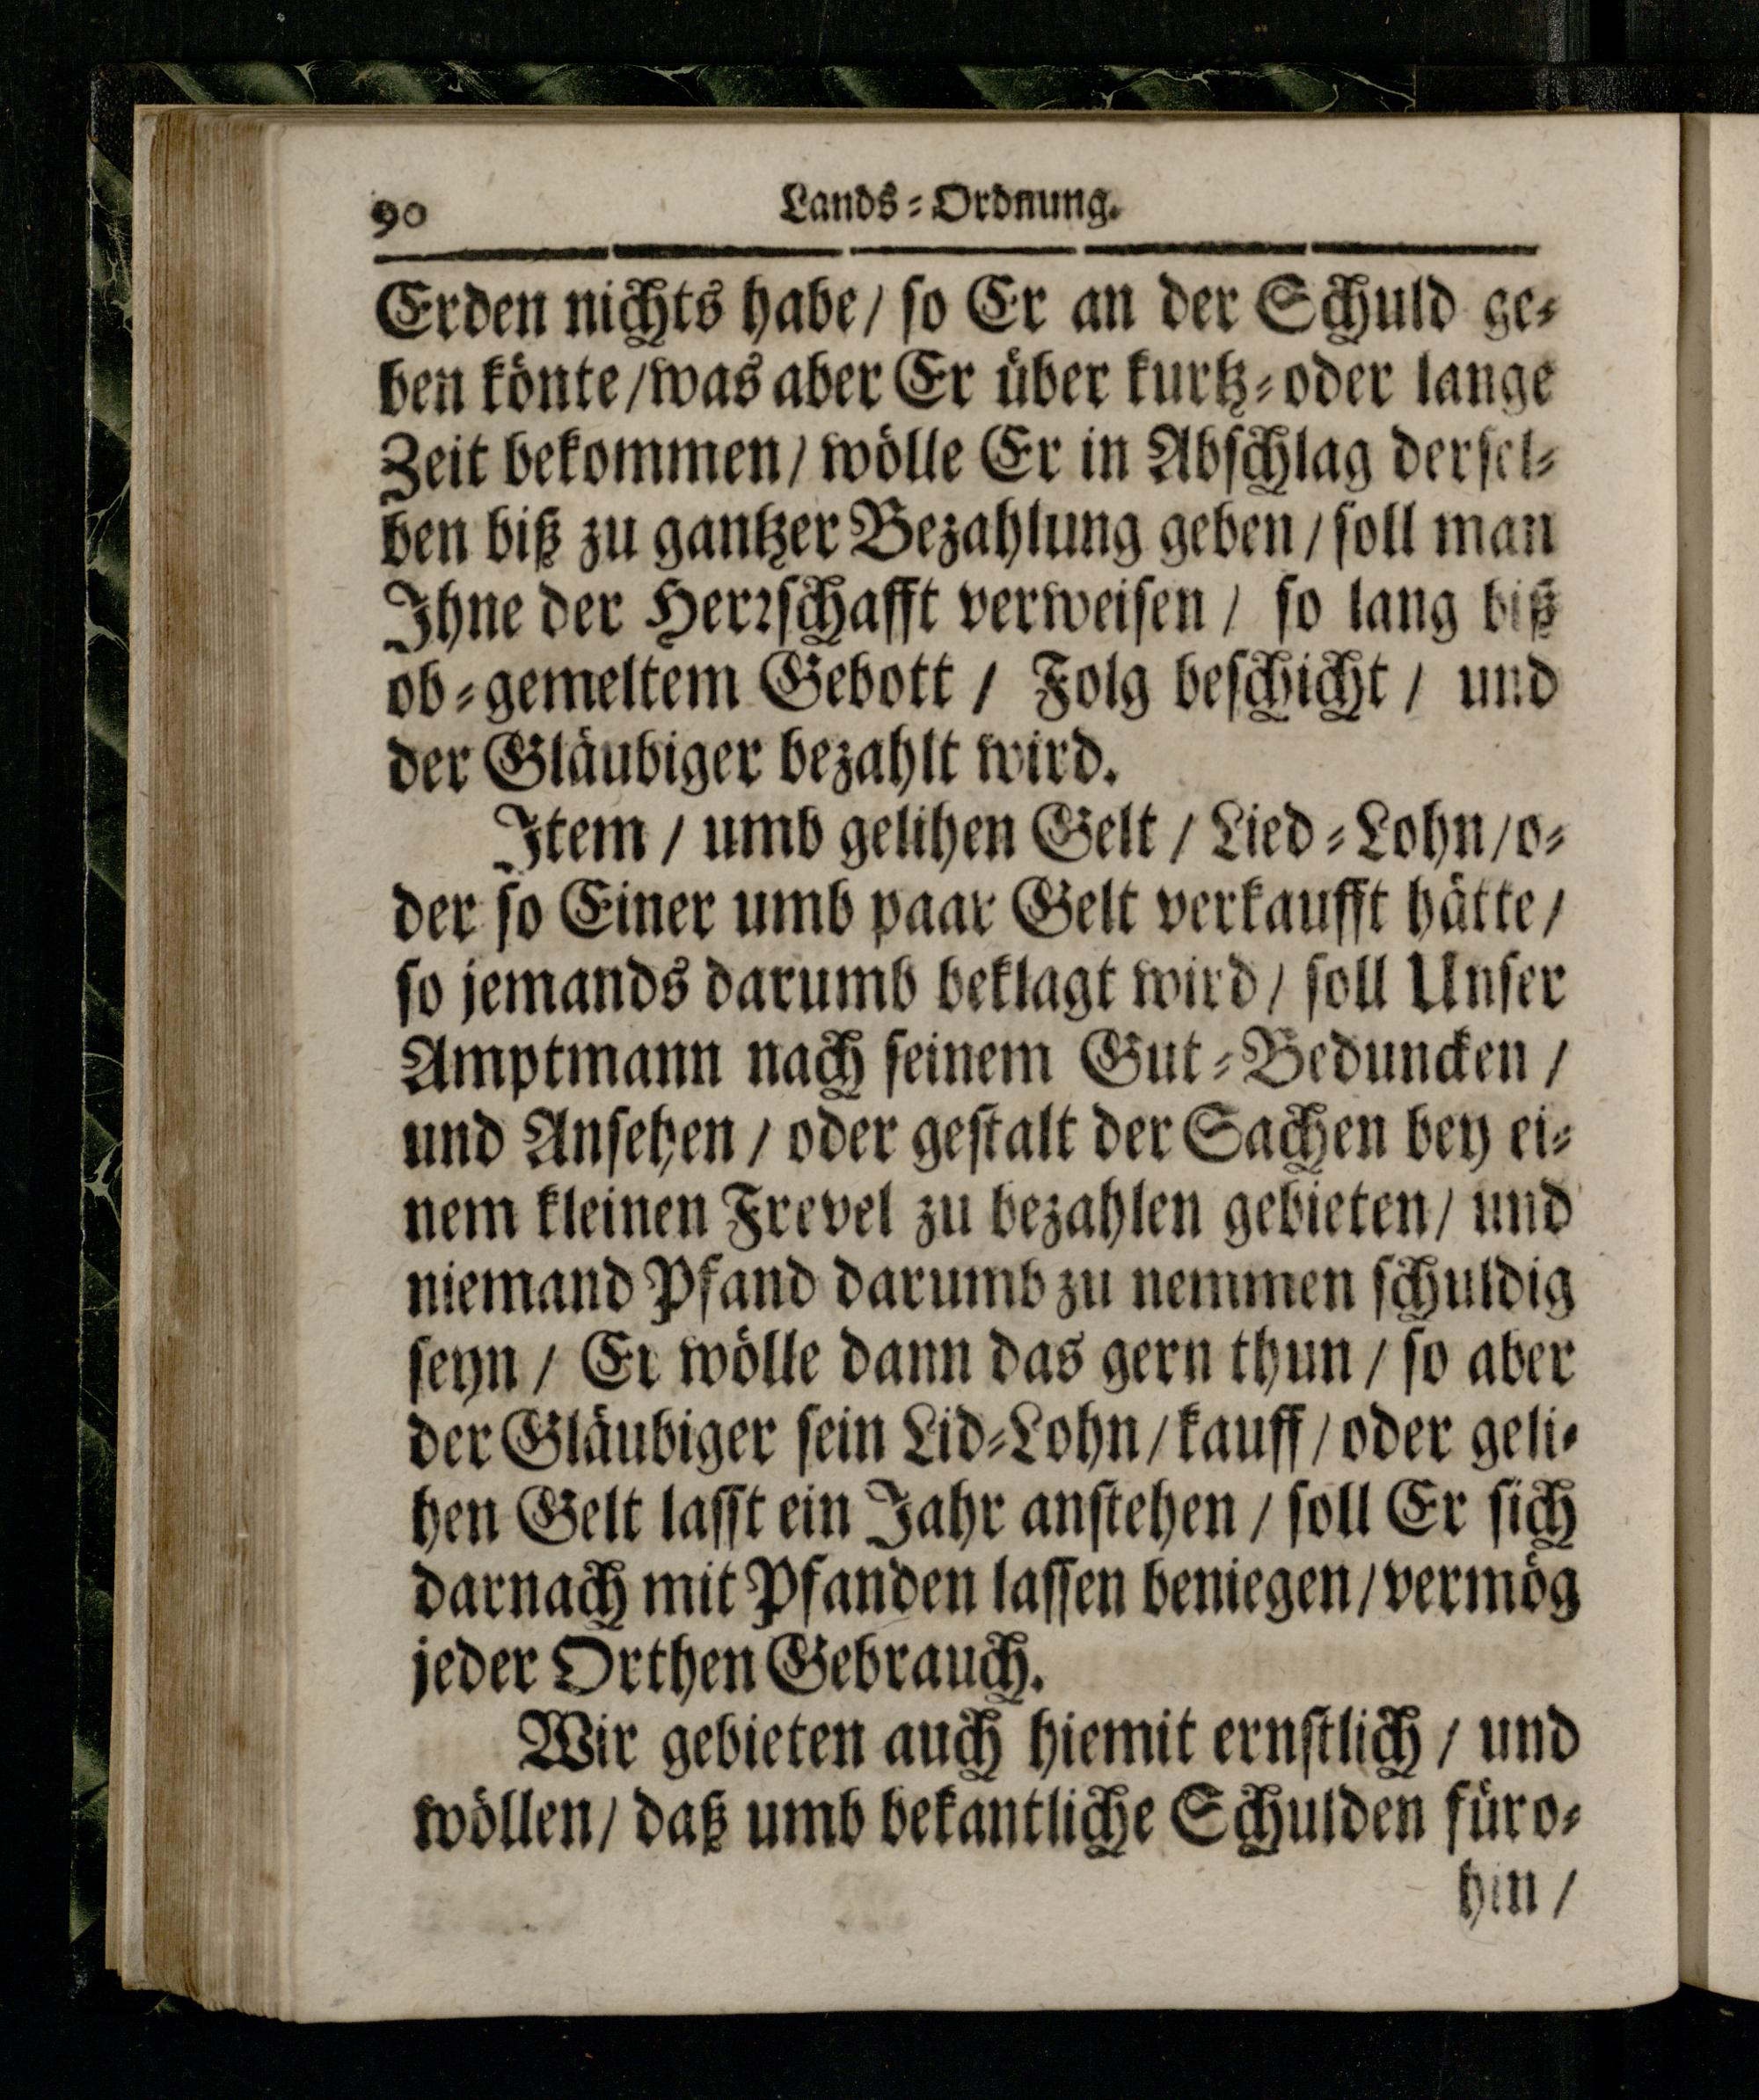 90 Lands-Ordnung.
Erden nichts habe/ so Er an der Schuld ge-
ben könte/was aber Er über kurtz-oder lange
Zeit bekommen/ wölle Er in Abschlag dersel-
ben biß zu gantzer Bezahlung geben/soll man
Ihne der Herrschafft verweisen/ so lang biß
ob-gemeltem Gebott/ Folg beschicht/ und
der Gläubiger bezahlt wird.
Item/ umb gelihen Gelt/ Lied-Lohn/o-
der so Einer umb paar Gelt verkaufft hätte/
so jemands darumb beklagt wird/ soll Unser
Amptmann nach seinem Gut-Beduncken/
und Ansehen/ oder gestalt der Sachen bey ei-
nem kleinen Frevel zu bezahlen gebieten/ und
niemand Pfand darumb zu nemmen schuldig
seyn/ Er wölle dann das gern thun/ so aber
der Gläubiger sein Lid-Lohn/kauff/oder geli-
hen Gelt lasst ein Jahr anstehen/ soll Er sich
darnach mit Pfanden lassen beniegen/vermög
jeder Orthen Gebrauch.
Wir gebieten auch hiemit ernstlich/ und
wöllen/ daß umb bekantliche Schulden füro-
hin/